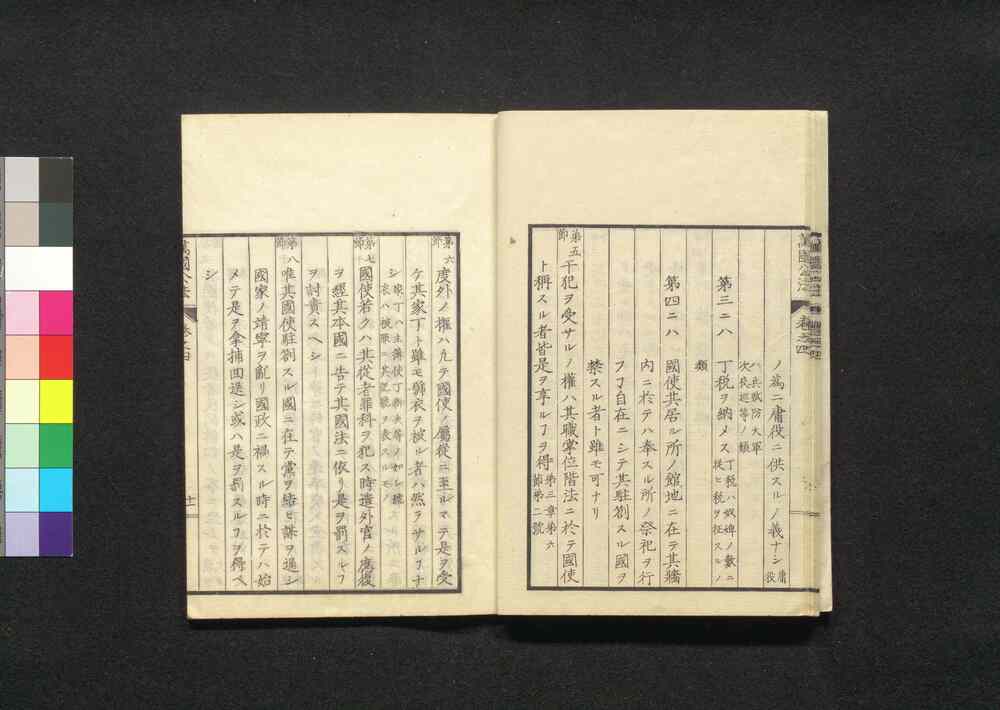 ノ爲ニ庸役ニ供スルノ義ナシ庸役
ハ兵賦防火軍
次夜巡等ノ類
第三ニハ
丁税ヲ納メス丁税ハ奴婢ノ數ニ
從ヒ税ヲ征スルノ
類
第四ニハ
國使其居ル所ノ館地ニ在テ其牆
内ニ於テハ奉スル所ノ祭祀ヲ行
フヿ自在ニシテ其駐劄スル國ヲ
禁スル者ト雖モ可ナリ
第五節
干犯ヲ受サルノ權ハ其職掌位階法ニ於テ國使
ト稱スル者皆是ヲ享ルヿヲ得第三章第六
節第二號
萬國公法
卷之四
第六節
度外ノ權ハ凡テ國使ノ屬從ニ至ルマテ是ヲ受
ケ其家丁ト雖モ號衣ヲ被ル者ハ然ラサルヿナ
シ家丁ハ主簿使丁
衣ハ被服ニ其記號ヲ表スルモノ
第七節
國使若クハ其從者罪科ヲ犯ス時遣外官ノ應復
ヲ經其本國ニ告テ其國法ニ依リ是ヲ罰スルヿ
ヲ討責スヘシ
第八節
唯其國使駐劄スル國ニ在テ黨ヲ結ヒ謀ヲ通シ
國家ノ靖寧ヲ亂リ國政ニ禍スル時ニ於テハ始
メテ是ヲ拿捕囬送シ或ハ是ヲ罰スルヿヲ得ヘ
シ
萬國公法
卷之四
十一